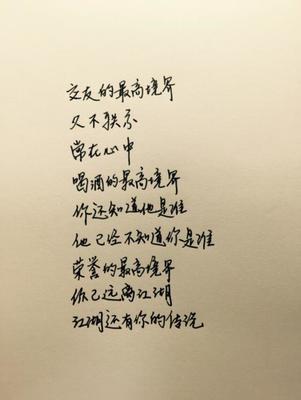 交友的最高境界
久不联系
常在心中
喝酒的最高境界
你还知道他是谁
他已经不知道你是谁
荣誉的最高境界
你已远离江湖
江湖还有你的传说